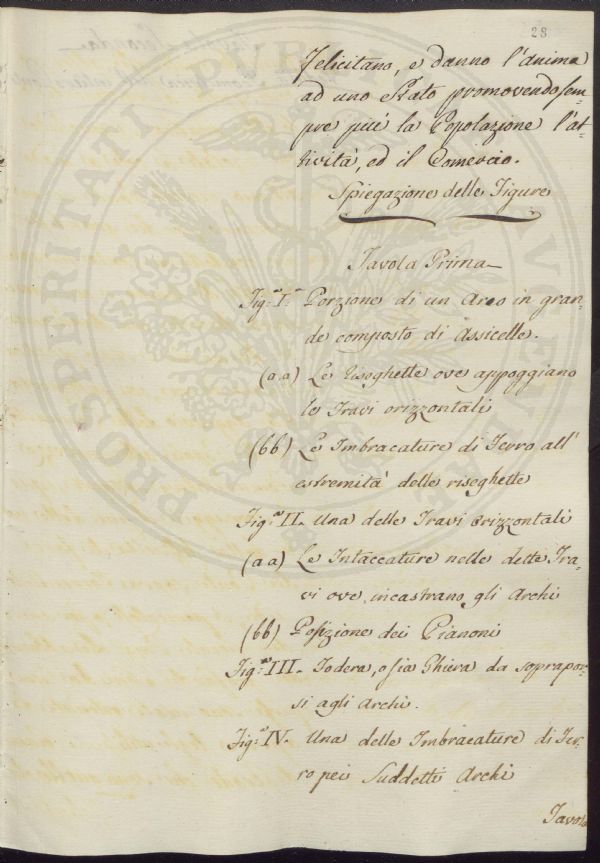 28
Felicitano, e danno l'anima
ad uno Stato promovendo sem-
pre più la Popolazione l'at-
tività, ed il Comercio.
Spiegazione delle Figure
Tavola Prima
Fig.ª I.ª Porzione di un Arco in gran-
de composto di Assicelle.
(aa) Le riseghette ove appoggiano
le Travi orizzontali
(bb) Le Imbracature di Ferro all'
estremità delle riseghette
Fig.ª II. Una delle Travi orizzontali
(aa) Le Intaccature nelle dette Tra-
vi ove incastrano gli Archi
(bb) Posizione dei Pianoni
Fig.ª III. Fodera, o sia Ghiera da soprapor-
si agli Archi.
Fig.ª IV. Una delle Imbracature di Fer-
ro pei Suddetti Archi
Tavola
PROSPERITATI PUBLICAE AUGENDAE